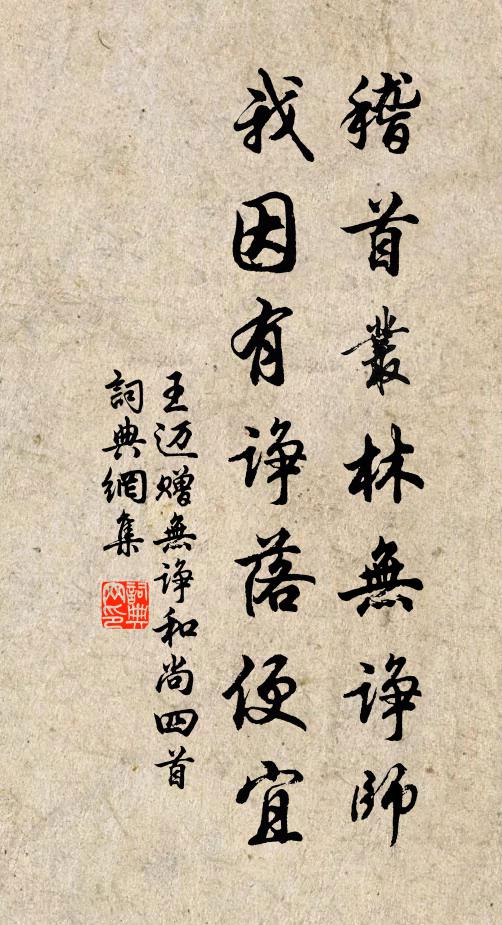 稽首叢林無諍師
我因有諍落便宜
王迈贈無諍和尚四首
詞典網集
詞典網印